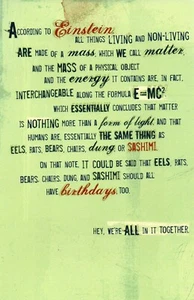 ACCORDING TO Einstein,
ALL THINGS LIVING AND NON-LIVING
ARE MADE OF A mass, WHICH WE CALL matter,
AND THE MASS OF A PHYSICAL OBJECT
AND THE energy IT CONTAINS ARE, IN FACT,
INTERCHANGEABLE ALONG THE FORMULA E=MC²
WHICH ESSENTIALLY CONCLUDES THAT MATTER
IS NOTHING MORE THAN A form of light, AND THAT
HUMANS ARE ESSENTIALLY THE SAME THING AS
EELS, RATS, BEARS, CHAIRS, dung OR SASHIMI.
ON THAT NOTE, IT COULD BE SAID THAT EELS, RATS,
BEARS, CHAIRS, DUNG, AND SASHIMI SHOULD ALL
HAVE birthdays, TOO.
HEY, WE'RE ALL IN IT TOGETHER.